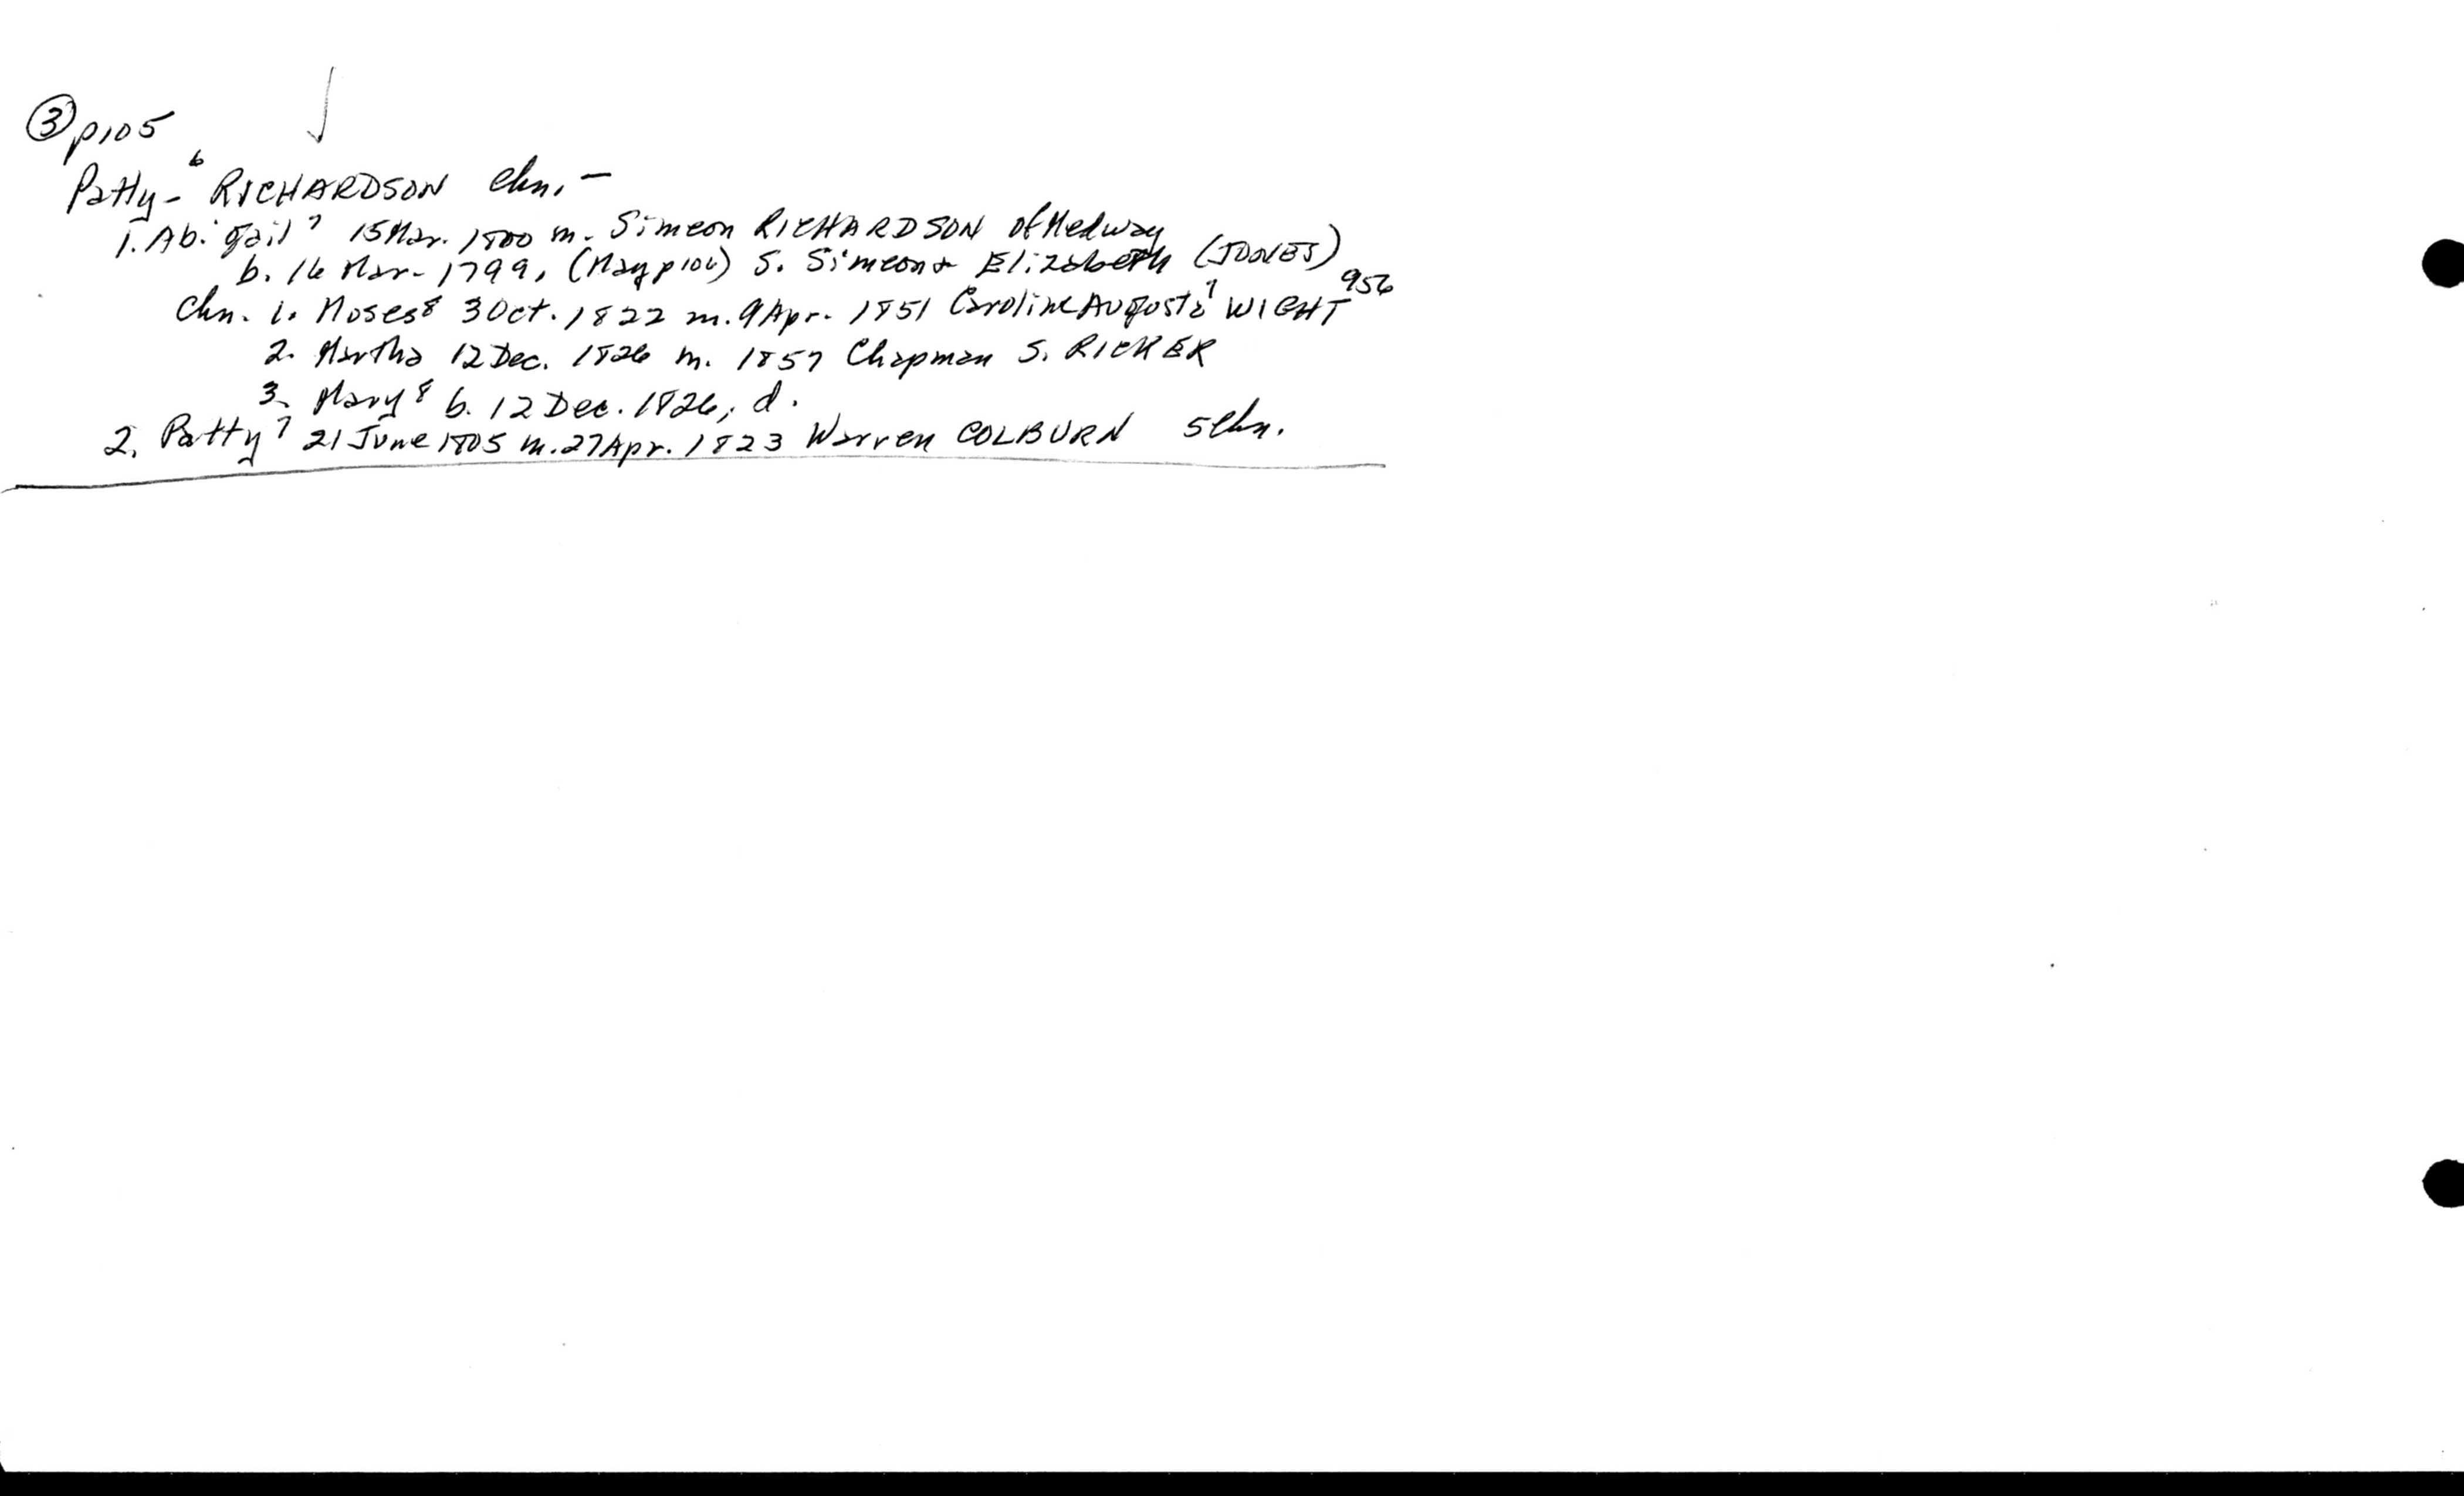 ③ p105
Patty-⁶ RICHARDSON chn. -
1. Abigail⁷ 15 Mar. 1800 m. Simeon RICHARDSON of Medway
b. 16 Mar. 1799, (May p106) S. Simeon & Elizabeth (JONES)
Chn. 1. Moses⁸ 3 Oct. 1822 m. 9 Apr. 1851 Caroline Augusta⁷ WIGHT 956
2. Martha 12 Dec. 1826 m. 1857 Chapman S. RICKER
3. Mary⁸ b. 12 Dec. 1826, d.
2. Patty⁷ 21 June 1805 m. 27 Apr. 1823 Warren COLBURN 5 chn.